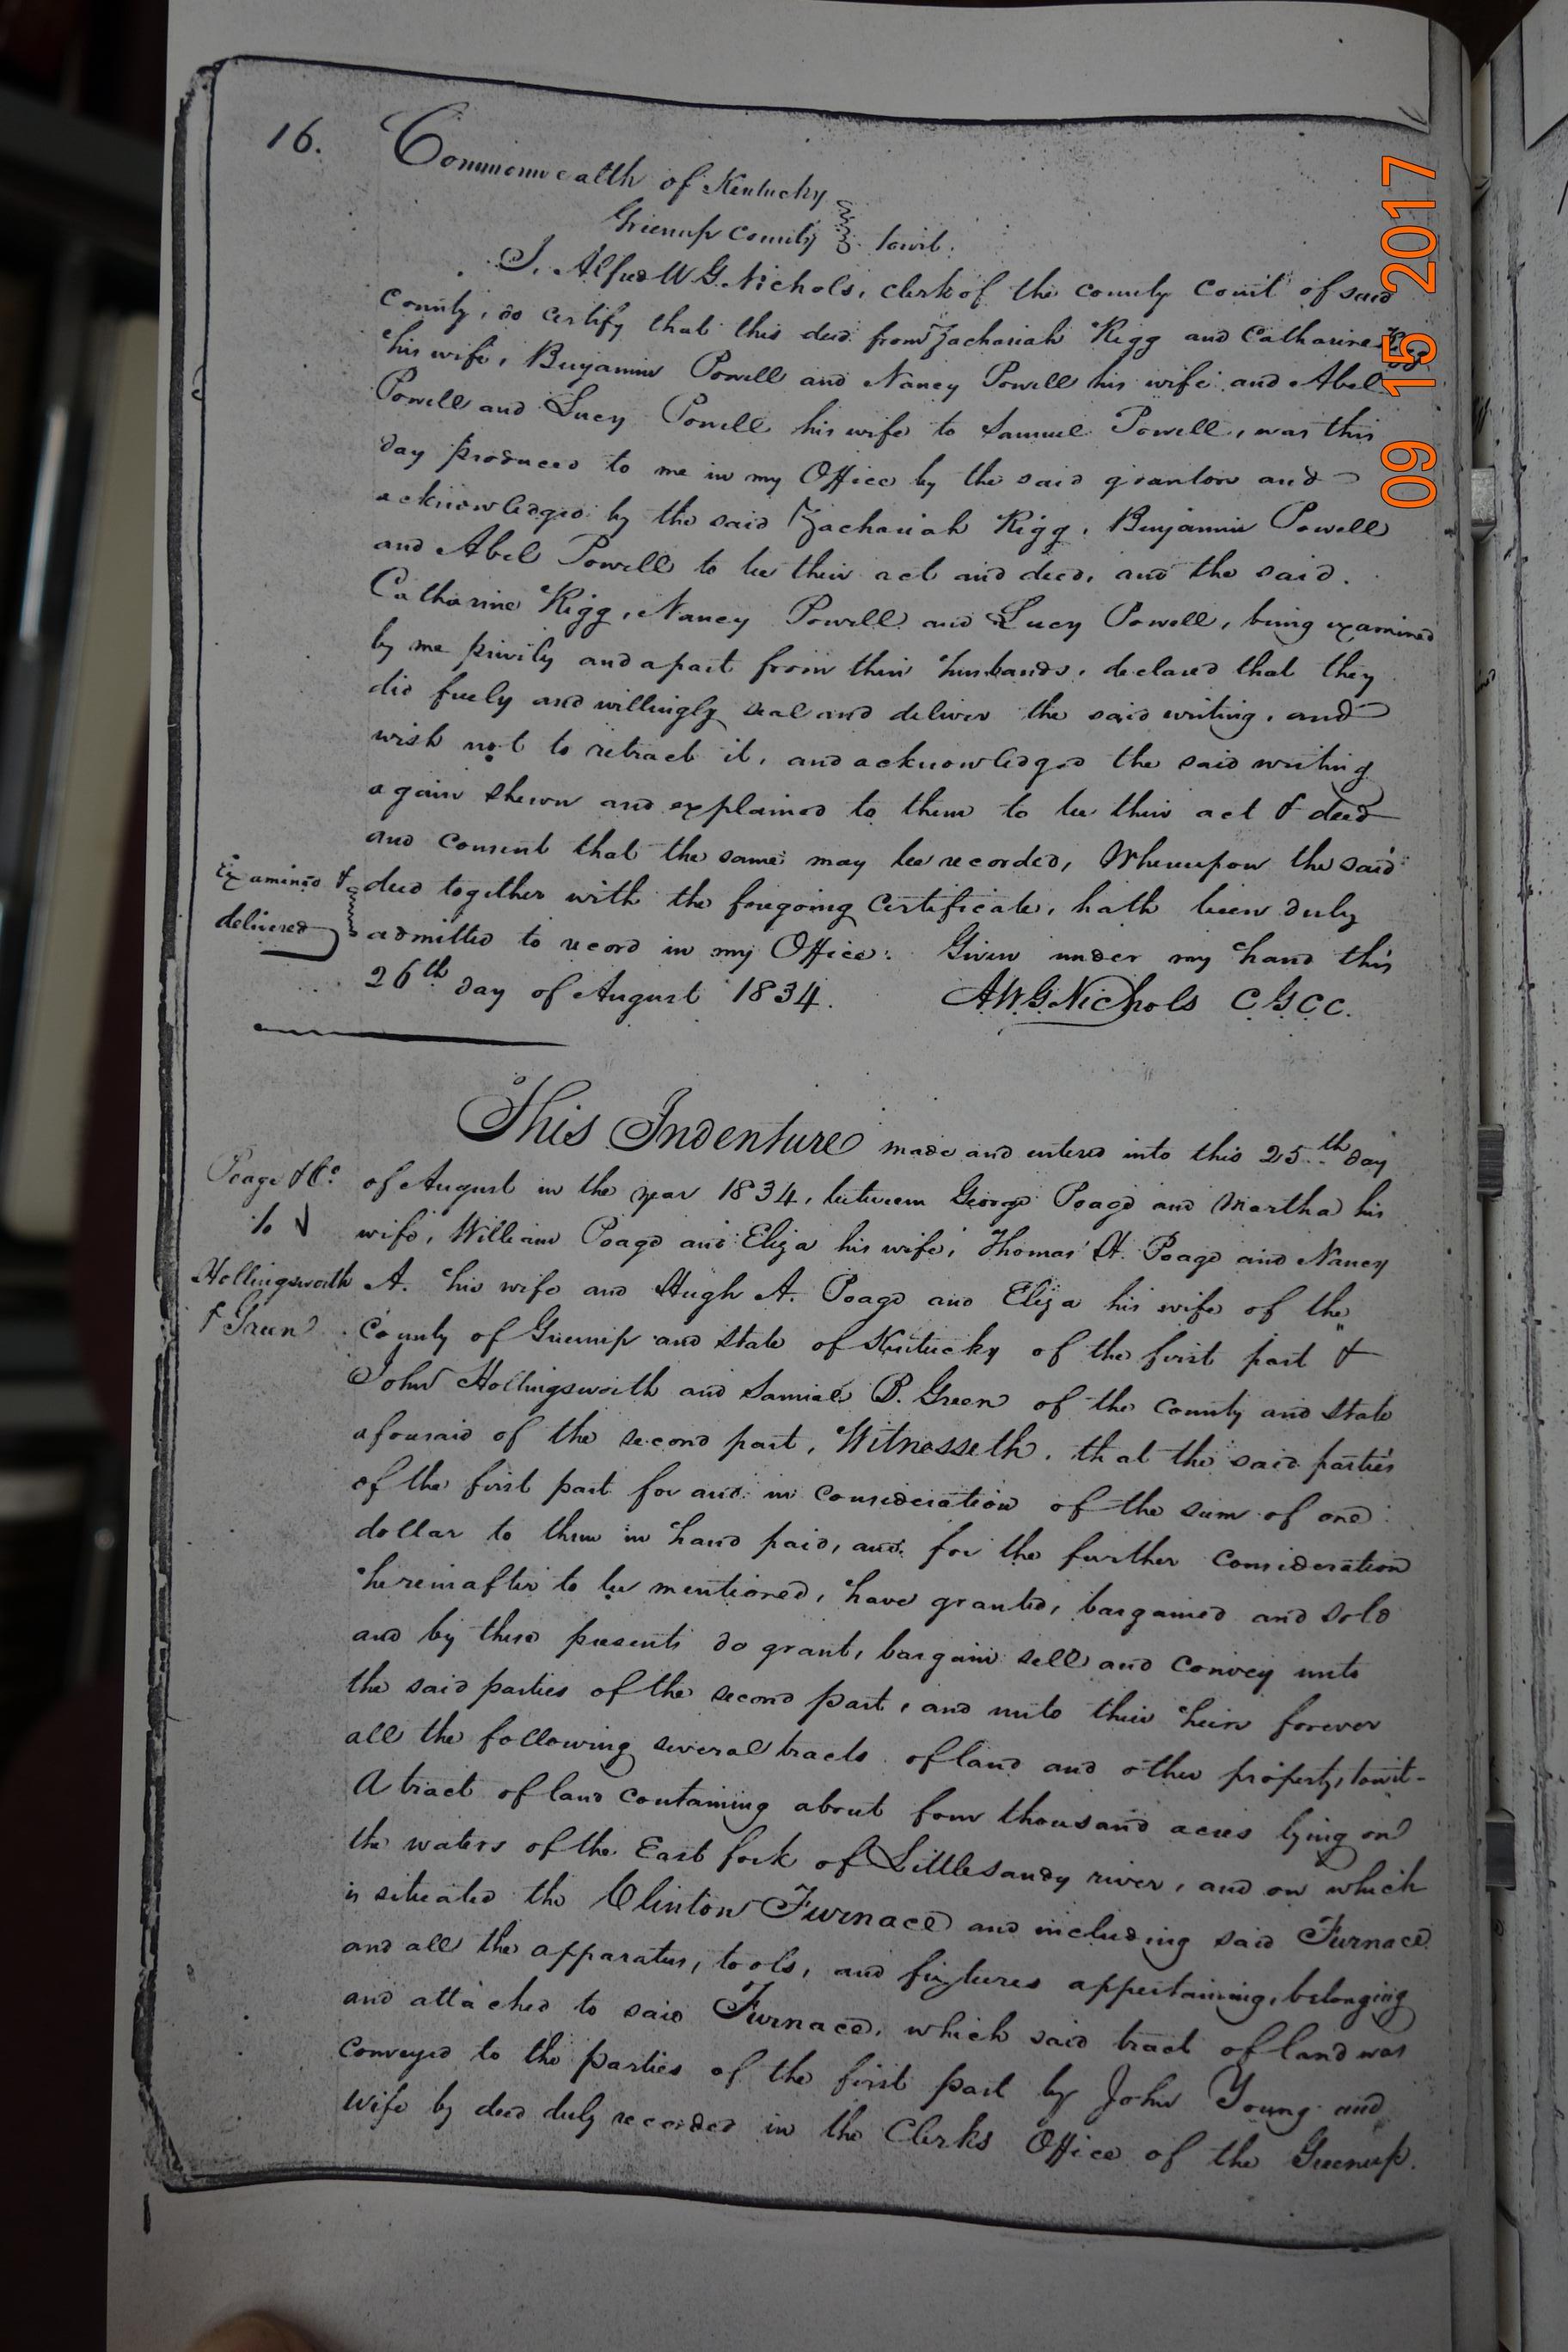 16.
Commonwealth of Kentucky
Greenup County } towit.
I, Alfred W G. Nichols, clerk of the county court of said
County, do certify that this deed from Zachariah Rigg and Catharine Rigg
his wife, Benjamin Powell and Nancy Powell his wife and Abel
Powell and Lucy Powell his wife to Samuel Powell, was this
day produced to me in my Office by the said grantors and
acknowledged by the said Zachariah Rigg, Benjamin Powell
and Abel Powell to be their act and deed, and the said
Catharine Rigg, Nancy Powell and Lucy Powell, being examined
by me privily and apart from their husbands, declared that they
did freely and willingly seal and deliver the said writing, and
wish not to retract it, and acknowledged the said writing
again shewn and explained to them to be their act & deed
and consent that the same may be recorded, Whereupon the said
Examined &
delivered
deed together with the foregoing Certificate, hath been duly
admitted to record in my Office: Given under my hand this
26th day of August 1834. A.W.G. Nichols C G C C.
This Indenture made and entered into this 25th day
Poage & Co
to
Hollingsworth
& Green
of August in the year 1834, between George Poage and Martha his
wife, William Poage and Eliza his wife, Thomas H. Poage and Nancy
A. his wife and Hugh A. Poage and Eliza his wife of the
County of Greenup and State of Kentucky of the first part &
John Hollingsworth and Samuel B. Green of the County and State
aforesaid of the second part, Witnesseth, that the said parties
of the first part for and in consideration of the sum of one
dollar to them in hand paid, and for the further consideration
hereinafter to be mentioned, have granted, bargained and sold
and by these presents do grant, bargain sell and convey unto
the said parties of the second part, and unto their heirs forever
all the following several tracts of land and other property, towit-
A tract of land containing about four thousand acres lying on
the waters of the East fork of Little Sandy river, and on which
is situated the Clinton Furnace and including said Furnace
and all the apparatus, tools, and fixtures appertaining, belonging
and attached to said Furnace, which said tract of land was
conveyed to the parties of the first part by John Young and
Wife by deed duly recorded in the Clerks Office of the Greenup.
09 15 2017